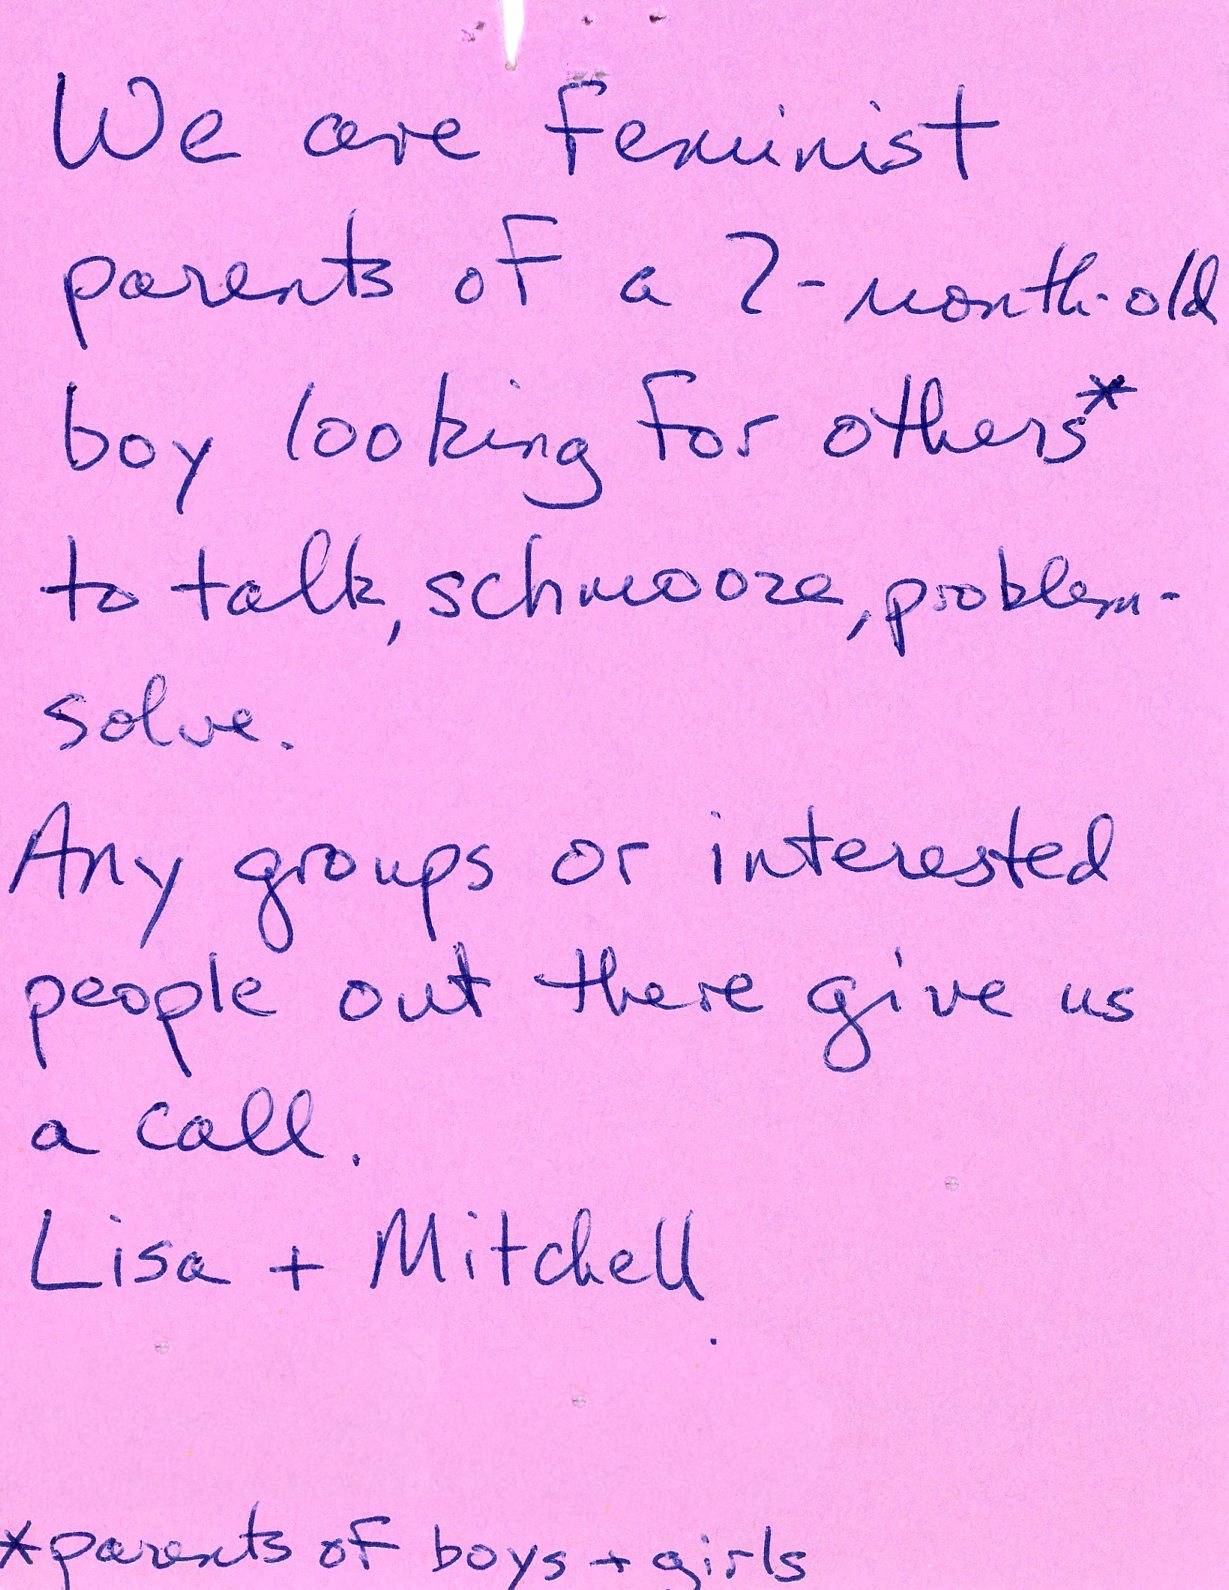 We are feminist
parents of a 7-month-old
boy looking for others*
to talk, schmooze, problem-
solve.
Any groups or interested
people out there give us
a call.
Lisa + Mitchell
*parents of boys + girls